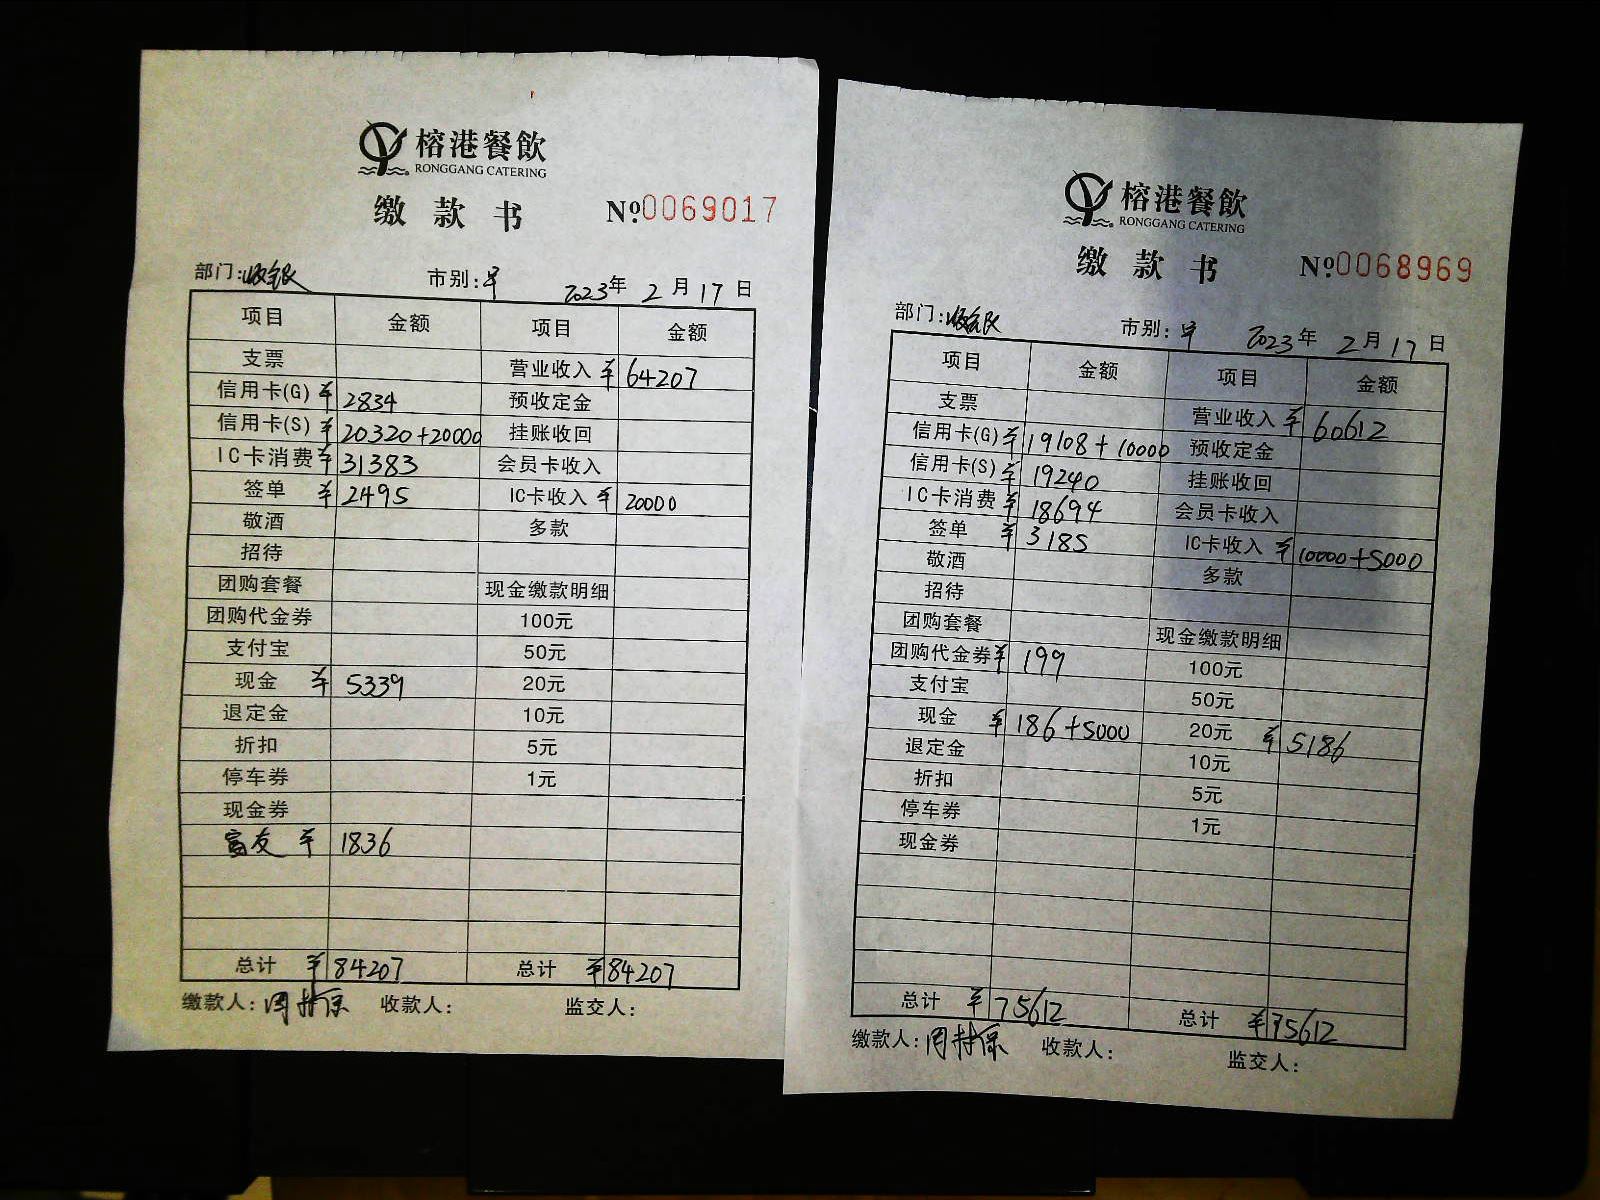 榕港餐飲
RONGGANG CATERING
缴款书 №0069017
部门:收银 市别:早 2023年2月17日
项目 金额 项目 金额
支票 营业收入 ¥64207
信用卡(G) ¥2834 预收定金
信用卡(S) ¥20320+20000 挂账收回
IC卡消费 ¥31383 会员卡收入
签单 ¥2495 IC卡收入 ¥20000
敬酒 多款
招待
团购套餐 现金缴款明细
团购代金券 100元
支付宝 50元
现金 ¥5339 20元
退定金 10元
折扣 5元
停车券 1元
现金券
富友 ¥1836
总计 ¥84207 总计 ¥84207
缴款人: 收款人: 监交人:
榕港餐飲
RONGGANG CATERING
缴款书 №0068969
部门:收银 市别:早 2023年2月17日
项目 金额 项目 金额
支票 营业收入 ¥60612
信用卡(G) ¥19108+10000 预收定金
信用卡(S) ¥19240 挂账收回
IC卡消费 ¥18694 会员卡收入
签单 ¥3185 IC卡收入 ¥10000+5000
敬酒 多款
招待
团购套餐 现金缴款明细
团购代金券 ¥199 100元
支付宝 50元
现金 ¥186+5000 20元 ¥5186
退定金 10元
折扣 5元
停车券 1元
现金券
总计 ¥75612 总计 ¥75612
缴款人: 收款人: 监交人: